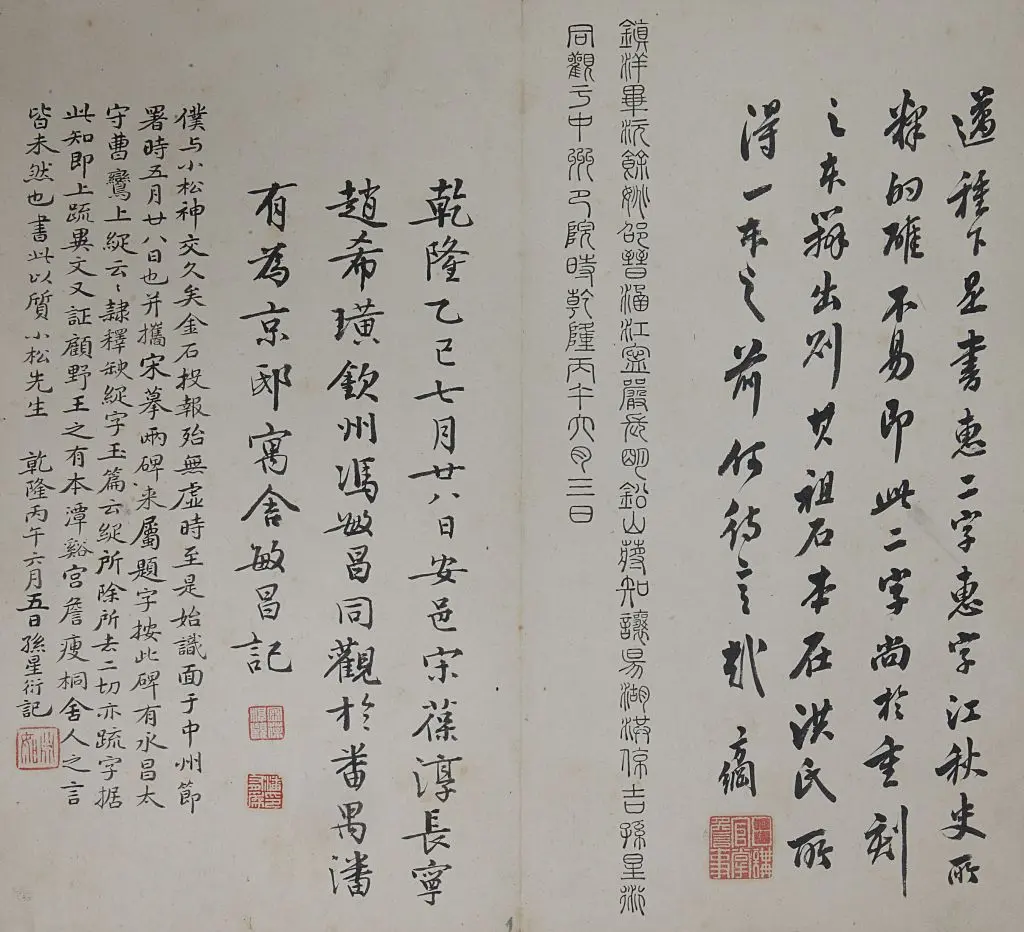 邁種下是書惠二字惠字江秋史所
釋的確不易即此二字尚於重刻
之本辨出則其祖石本在洪氏所
得一本之前何待言哉 方綱
鎮洋畢沅餘姚邵晉涵江寧嚴長明鉛山蔣知讓陽湖洪亮吉孫星衍
同觀于中州節院時乾隆丙午六月三日
乾隆乙巳七月廿八日安邑宋葆淳長寧
趙希璜欽州馮敏昌同觀於番禺潘
有為京邸寓舍敏昌記
僕與小松神交久矣金石投報殆無虛時至是始識面于中州節
署時五月廿八日也并攜宋摹兩碑来屬題字按此碑有永昌太
守曹鸞上縱云〻隸釋缺縱字玉篇云縱所除所去二切亦疏字据
此知即上疏異文又証顧野王之有本潭谿宮詹瘦桐舍人之言
皆未然也書此以質小松先生 乾隆丙午六月五日孫星衍記